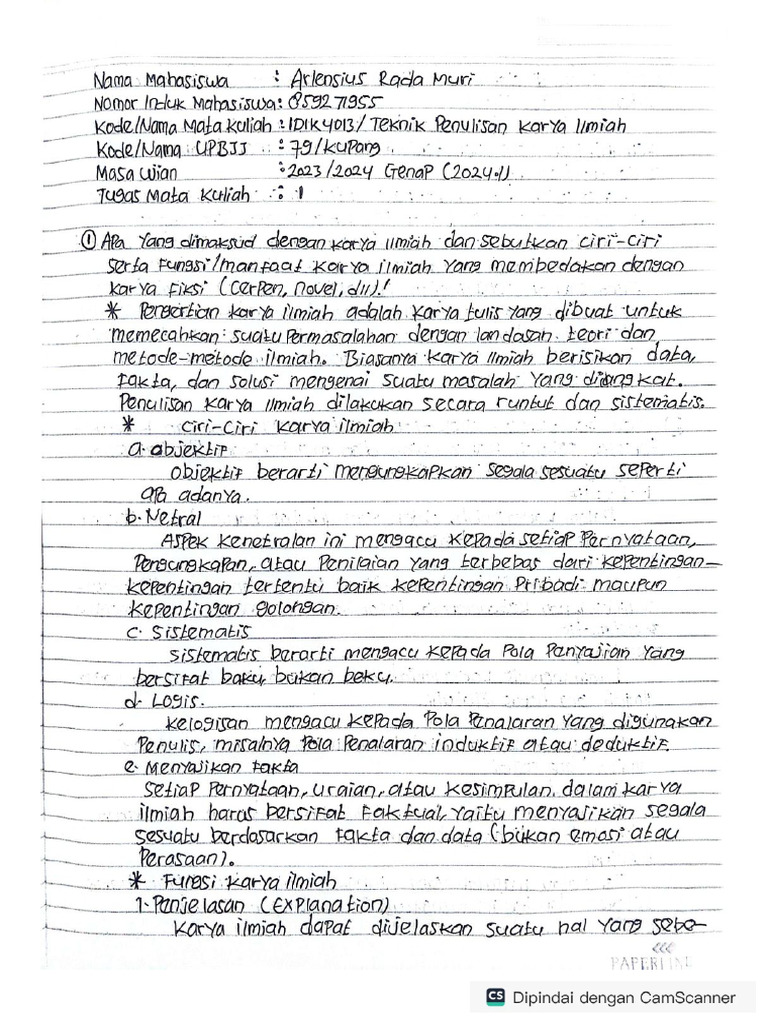 Nama Mahasiswa : Arlensius Rada Muri
Nomor Induk Mahasiswa: 859271955
Kode/Nama Mata Kuliah : IDIK4013/ Teknik Penulisan Karya Ilmiah
Kode/Nama UPBJJ : 79/Kupang
Masa Ujian : 2023/2024 Genap (2024.1)
Tugas Mata Kuliah : 1
① Apa yang dimaksud dengan karya ilmiah dan sebutkan ciri-ciri
serta fungsi/manfaat karya ilmiah yang membedakan dengan
karya fiksi (cerpen, novel, dll)!
* Pengertian karya ilmiah adalah karya tulis yang dibuat untuk
memecahkan suatu permasalahan dengan landasan teori dan
metode-metode ilmiah. Biasanya karya ilmiah berisikan data,
fakta, dan solusi mengenai suatu masalah yang diangkat.
Penulisan karya ilmiah dilakukan secara runtut dan sistematis.
* ciri-ciri karya ilmiah
a. objektif
objektif berarti mengungkapkan segala sesuatu seperti
apa adanya.
b. Netral
Aspek kenetralan ini mengacu kepada setiap pernyataan,
Pengungkapan, atau Penilaian yang terbebas dari kepentingan-
kepentingan tertentu baik kepentingan Pribadi maupun
kepentingan golongan.
c. Sistematis
sistematis berarti mengacu kepada Pola Penyajian yang
bersifat baku, bukan beku.
d. Logis.
kelogisan mengacu kepada Pola Penalaran yang digunakan
Penulis, misalnya Pola Penalaran induktif atau deduktif.
e. Menyajikan fakta
Setiap Pernyataan, uraian, atau kesimpulan dalam karya
ilmiah harus bersifat faktual, yaitu menyajikan segala
sesuatu berdasarkan fakta dan data (bukan emosi atau
Perasaan).
* Fungsi karya ilmiah
1. Penjelasan (Explanation)
Karya ilmiah dapat dijelaskan suatu hal yang sebe-
PAPERLINE
CS Dipindai dengan CamScanner